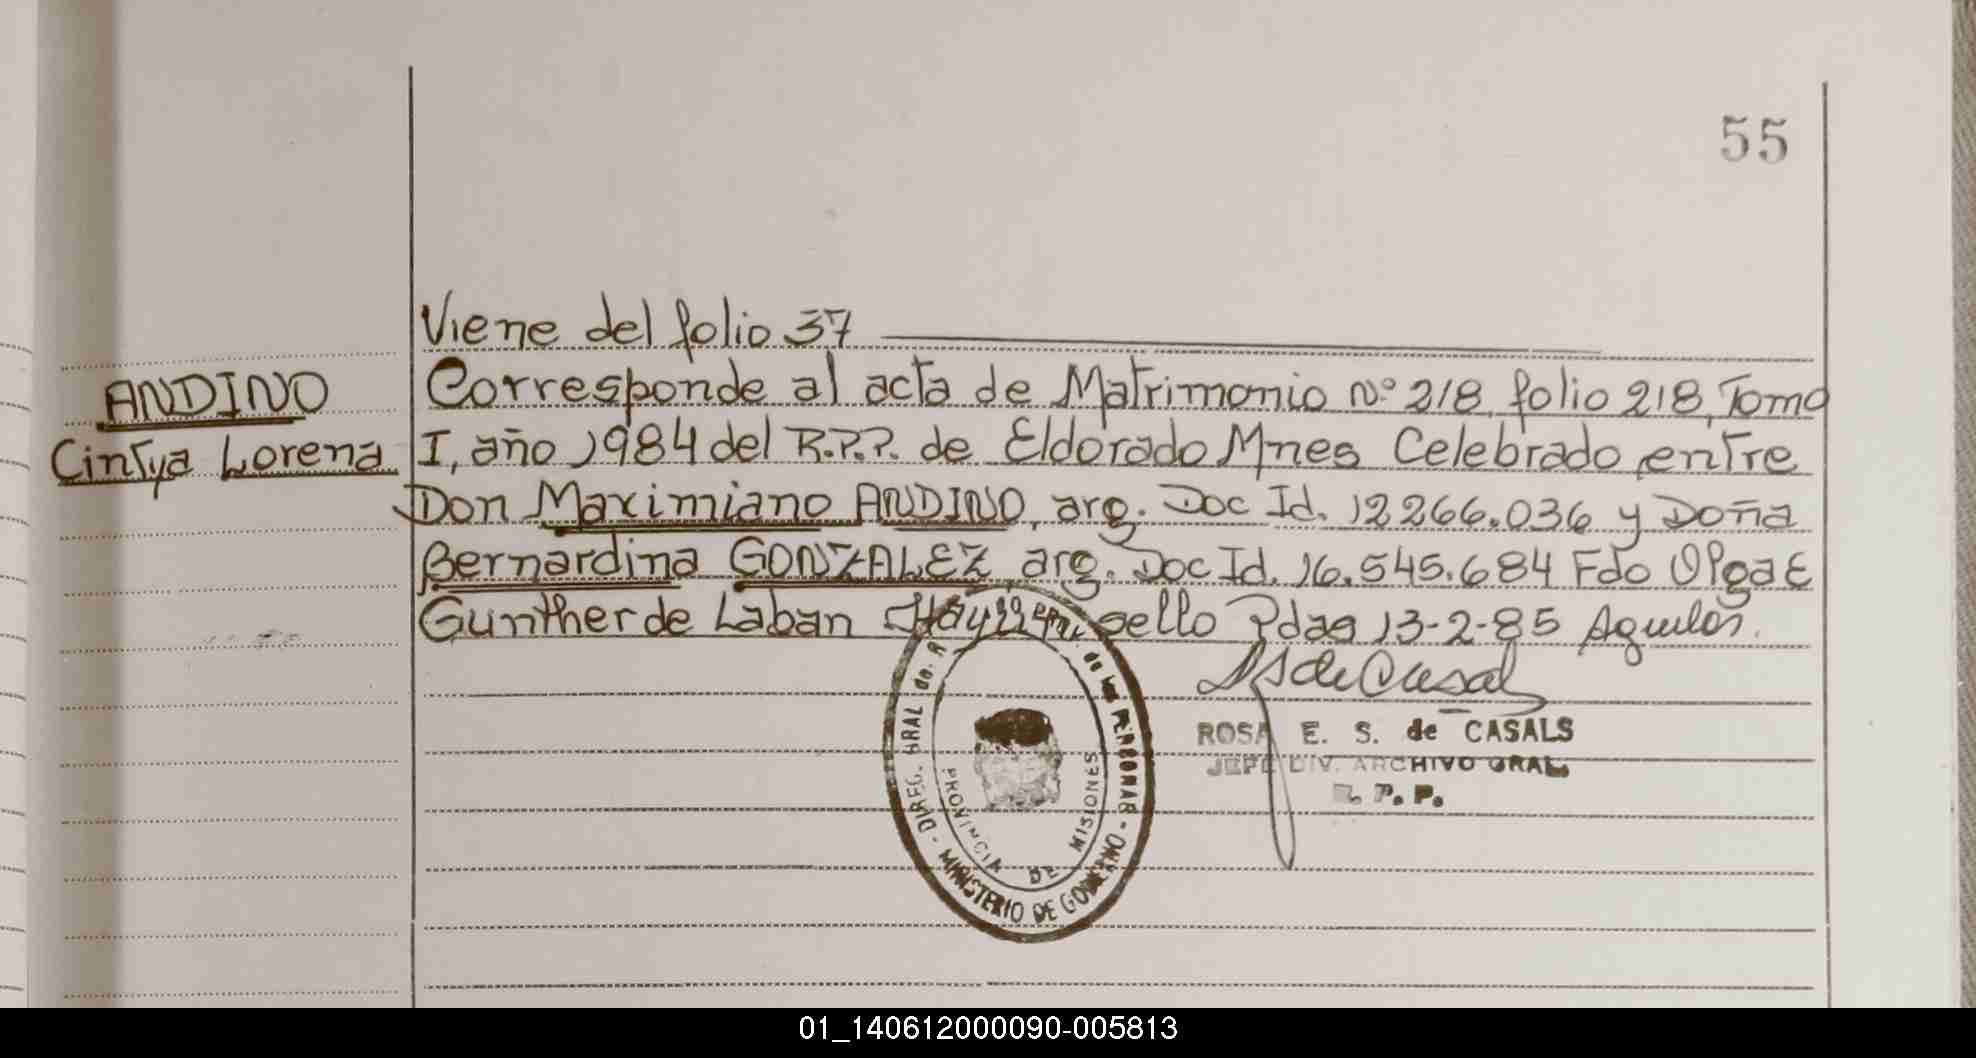 55
Viene del folio 37
ANDINO
Cintya Lorena
Corresponde al acta de Matrimonio Nº 218, folio 218, Tomo
I, año 1984 del R.P.P. de Eldorado Mnes Celebrado entre
Don Maximiano ANDINO, arg. Doc Id. 12266.036 y Doña
Bernardina GONZALEZ arg. Doc Id. 16.545.684 Fdo Olga E
Gunther de Laban Hay sello Pdas 13-2-85
DIREC. GRAL de de las PERSONAS
PROVINCIA DE MISIONES
MINISTERIO DE GOBIERNO
de Casals
ROSA E. S. de CASALS
JEFE DIV. ARCHIVO GRAL.
R. P. P.
01_140612000090-005813